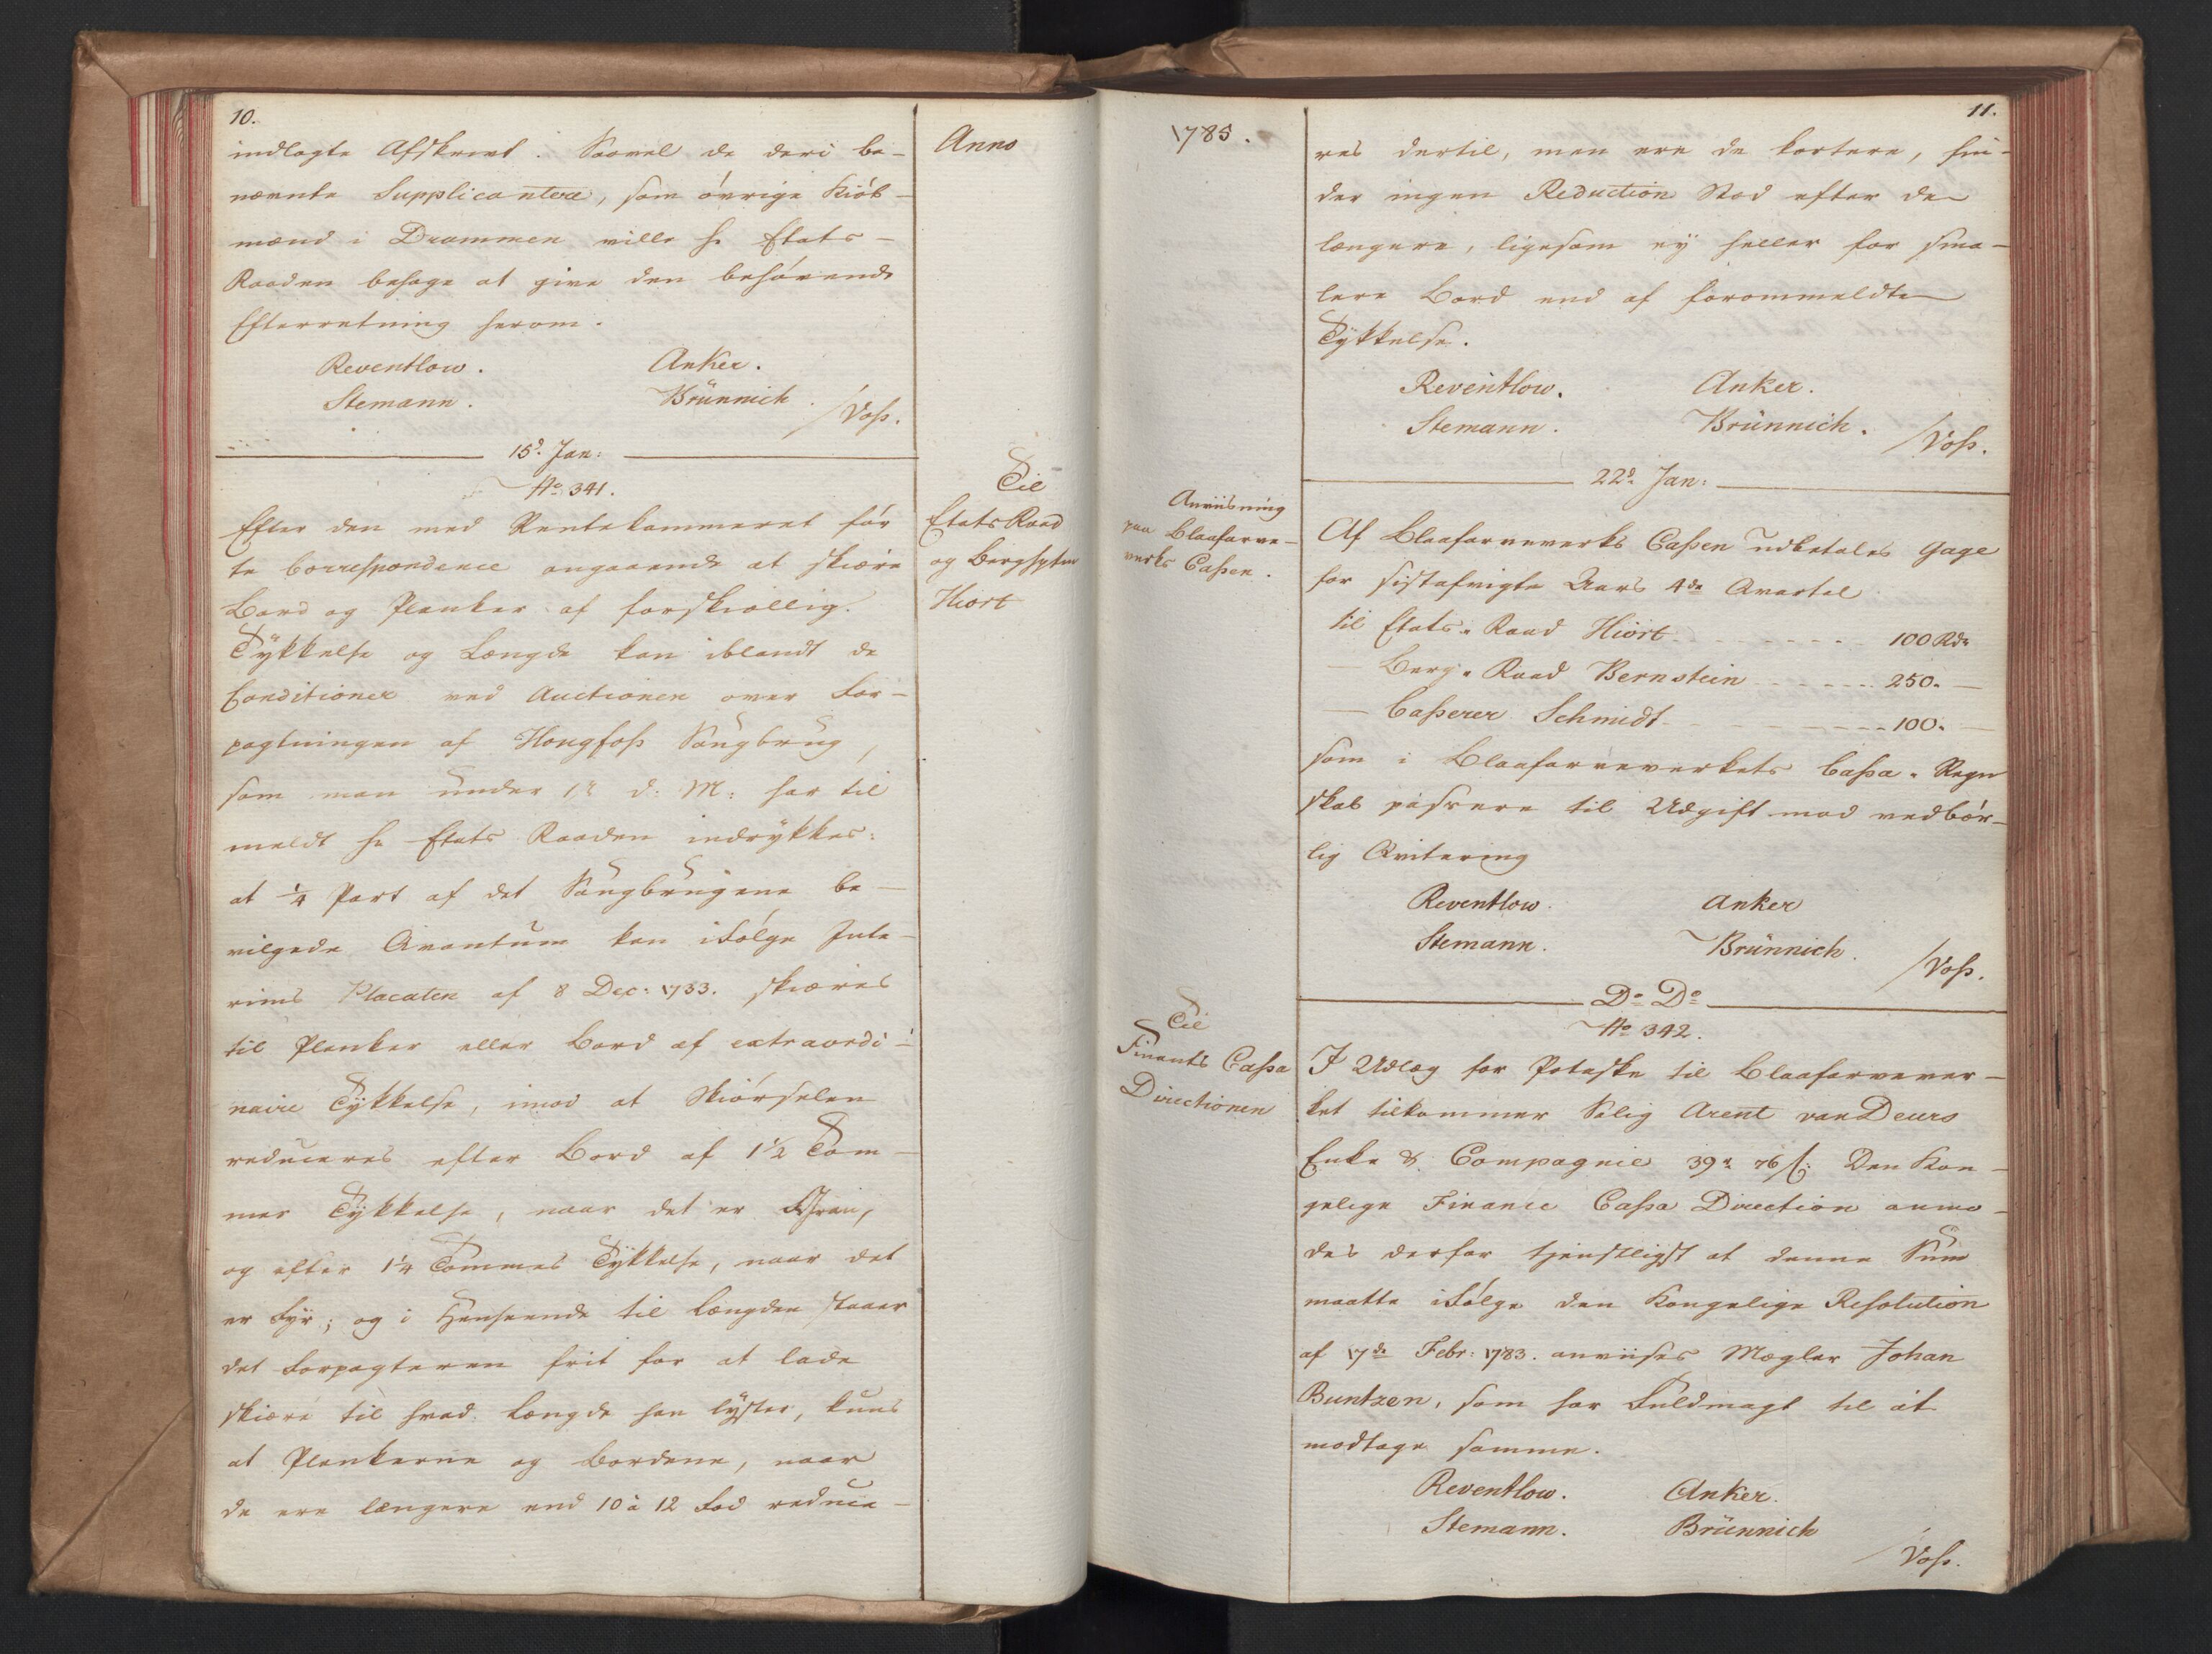 10.
Anno
indlagte Afskrivt. Saavel de deri be-
nævnte Supplicantere, som øvrige Kiøb-
mænd i Drammen ville Hr Etats-
Raaden behage at give den behøvende
Efterretning herom.
Reventlow. Anker.
Stemann. Brünnich. /Voss.
15d. Jan:
No 341.
Til
EtatsRaad
og Berghptm
Hiort
Efter den med Rentekammeret før
te Correspondence angaaende at skiære
Bord og Planker af forskiællig
Tykkelse og Længde kan iblandt de
Conditioner ved Auctionen over For-
pagtningen af Hougfoss Saugbrug,
som man under 1te d: M: har til
meldt Hr Etats Raaden indrykkes:
at 1/4 Part af det Saugbrugene be-
vilgede Qvantum kan ifølge Inte-
rims Placaten af 8 Dec: 1733. skiæres
til Planker eller Bord af extraordi-
naire Tykkelse, imod at Skiørselen
reduceres efter Bord af 1 1/2 Tom-
mes Tykkelse, naar det er Gran,
og efter 1 1/4 Tommes Tykkelse, naar det
er Fyr; og i Henseende til Længden staaer
det Forpagteren frit for at lade
skiære til hvad Længde han lyster, kuns
at Plankerne og Bordene, naar
de ere længere end 10 à 12 Fod reduce-
1785.
11.
res dertil, men ere de kortere, fin-
der ingen Reduction Stød efter de
længere, ligesom ey heller for sma-
lere Bord end af forommeldte
Tykkelse.
Reventlow. Anker.
Stemann. Brünnich. /Voss.
22d. Jan:
Anviisning
paa Blaafarve-
verks Cassen.
Af Blaafarveverks Cassen udbetales Gage
for sistafvigte Aars 4de Qvartal
til Etats-Raad Hiort 100 Rdr
— Berg-Raad Bernstein 250. —
— Casserer Schmidt 100. —
som i Blaafarveverkets Cassa-Regn
skab passere til Udgift mod vedbør-
lig Qvitering
Reventlow. Anker
Stemann. Brünnich. /Voss.
Do Do
No 342.
Til
Finants Cassa
Directionen
I Udlæg for Potaske til Blaafarvever-
ket tilkommer Salig Arent van Deurs
Enke & Compagnie 39rd 76 s: Den Kon-
gelige Finance Cassa Direction anmo-
des derfor tjenstligst at denne Sum
maatte ifølge den Kongelige Resolution
af 17de Febr: 1783. anviises Mægler Johan
Buntzen, som har Fuldmagt til at
modtage samme.
Reventlow. Anker.
Stemann. Brünnich
/Voss.